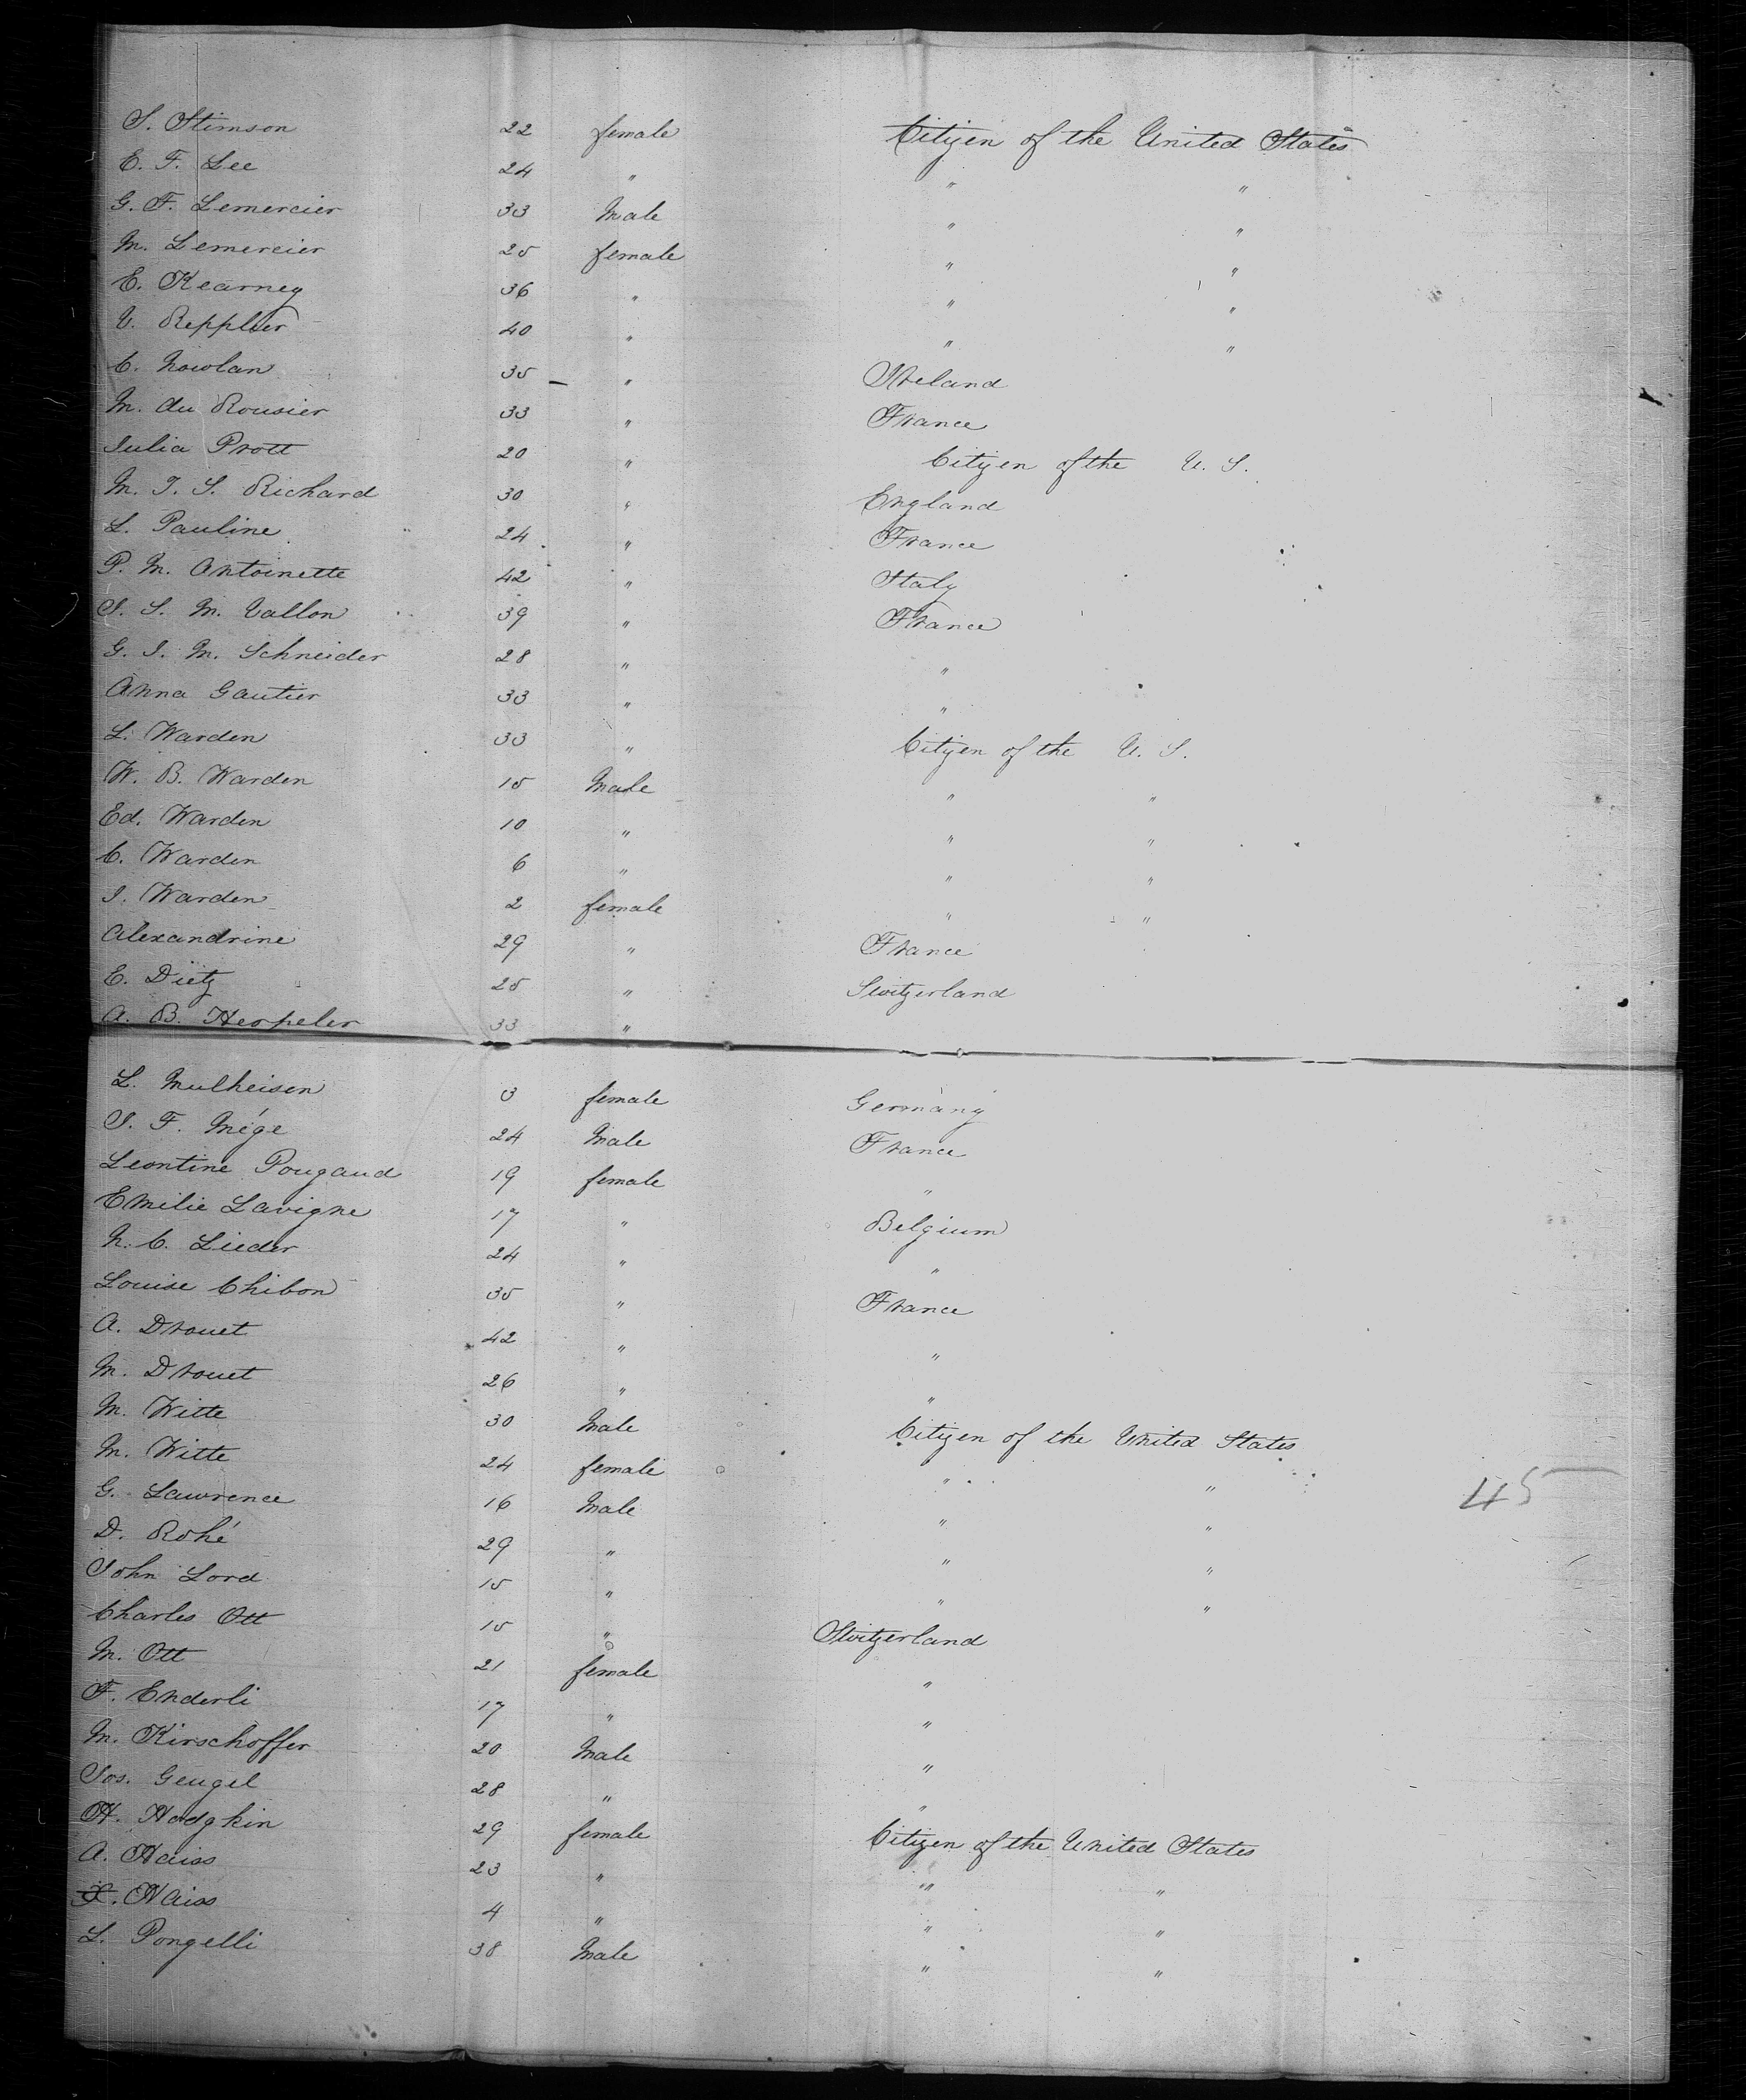 S. Stimson 22 female Citizen of the United States
E. F. Lee 24 " " "
G. F. Lemercier 33 Male " "
M. Lemercier 25 female " "
E. Kearney 36 " " "
V. Repplier 40 " " "
C. Nowlan 35 – " Ireland
M. du Rousier 33 " France
Julia Prott 20 " Citizen of the U. S.
M. T. S. Richard 30 " England
L. Pauline 24 " France
P. M. Antoinette 42 " Italy
S. S. M. Vallon 39 " France
G. J. M. Schneider 28 " "
Anna Gautier 33 " "
L. Warden 33 " Citizen of the U. S.
W. B. Warden 15 Male " "
Ed. Warden 10 " " "
C. Warden 6 " " "
J. Warden 2 female " "
Alexandrine 29 " France
E. Dietz 25 " Switzerland
A. B. Herpeler 33 "
L. Mulheisen 3 female Germany
J. F. Mége 24 Male France
Leontine Pougaud 19 female "
Emilie Lavigne 17 " Belgium
N. C. Lieder 24 " "
Louise Chibon 35 " France
A. Drouet 42 " "
M. Drouet 26 " "
M. Witte 30 Male Citizen of the United States
M. Witte 24 female " "
G. Lawrence 16 Male " "
45
D. Rohé 29 " " "
John Lord 15 " " "
Charles Ott 15 " Switzerland
M. Ott 21 female "
F. Enderli 17 " "
M. Kirschoffer 20 Male "
Jos. Geugel 28 " "
H. Hodgkin 29 female Citizen of the United States
A. Naiss 23 " " "
X. Naiss 4 " " "
L. Pongelli 38 Male " "